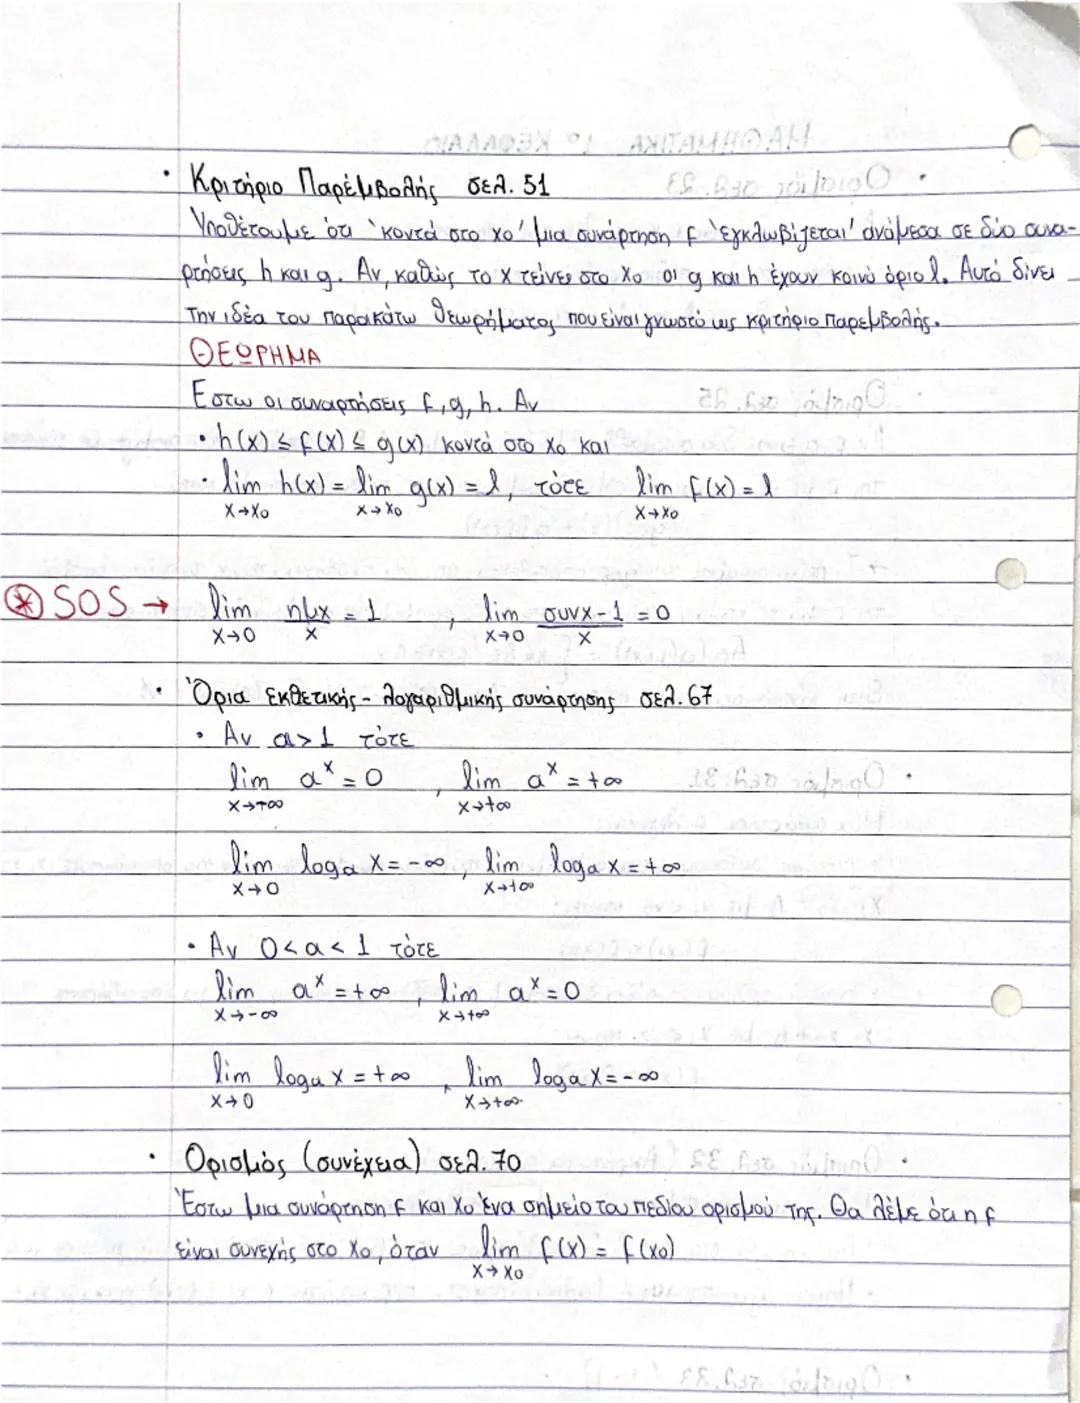 • Κριτήριο Παρέμβολής σελ. 51
Υποθέτουμε ότι 'κοντά στο xο' μια συνάρτηση f 'εγκλωβίζεται' ανάμεσα σε δύο συνα-
ρτήσεις h και g. Αν, καθώς το x τείνει στο xο οι g και h έχουν κοινό όριο l. Αυτό δίνει
την ιδέα του παρακάτω θεωρήματος που είναι γνωστό ως κριτήριο παρεμβολής.
ΘΕΩΡΗΜΑ
Εστω οι συναρτήσεις f, g, h. Αν
• h(x) ≤ f(x) ≤ g(x) κοντά στο xο και
• lim h(x) = lim g(x) = l, τότε lim f(x) = l
x→xο x→xο x→xο
⊛ SOS → lim ημx/x = 1 , lim συνx-1/x = 0
x→0 x→0
• Όρια εκθετικής - λογαριθμικής συνάρτησης σελ. 67
• Αν a>1 τότε
lim a^x = 0 , lim a^x = +∞
x→-∞ x→+∞
lim logₐ x = -∞ , lim logₐ x = +∞
x→0 x→+∞
• Αν 0<a<1 τότε
lim a^x = +∞ , lim a^x = 0
x→-∞ x→+∞
lim logₐ x = +∞ , lim logₐ x = -∞
x→0 x→+∞
• Ορισμός (συνέχεια) σελ. 70
Έστω μια συνάρτηση f και xο ένα σημείο του πεδίου ορισμού της. Θα λέμε ότι η f
είναι συνεχής στο xο, όταν lim f(x) = f(xο)
x→xο